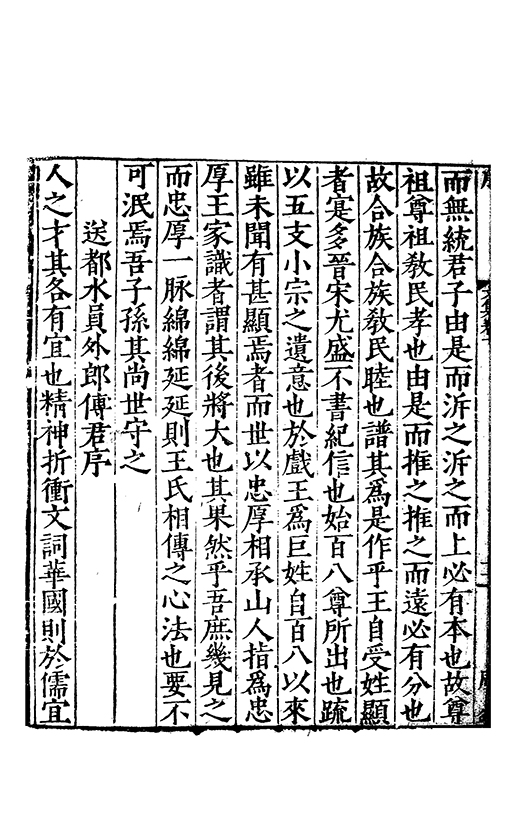 而無統君子由是而泝之泝之而上必有本也故尊
祖尊祖敎民孝也由是而推之推之而遠必有分也
故合族合族敎民睦也譜其為是作乎王自受姓顯
者寔多晉宋尤盛不書紀信也始百八尊所出也䟽
以五支小宗之遺意也於戲王為巨姓自百八以來
雖未聞有甚顯焉者而世以忠厚相承山人指為忠
厚王家識者謂其後將大也其果然乎吾庶幾見之
而忠厚一脉綿綿延延則王氏相傳之心法也要不
可泯焉吾子孫其尚世守之
送都水員外郎傅君序
人之才其各有宜也精神折衝文詞華國則於儒宜